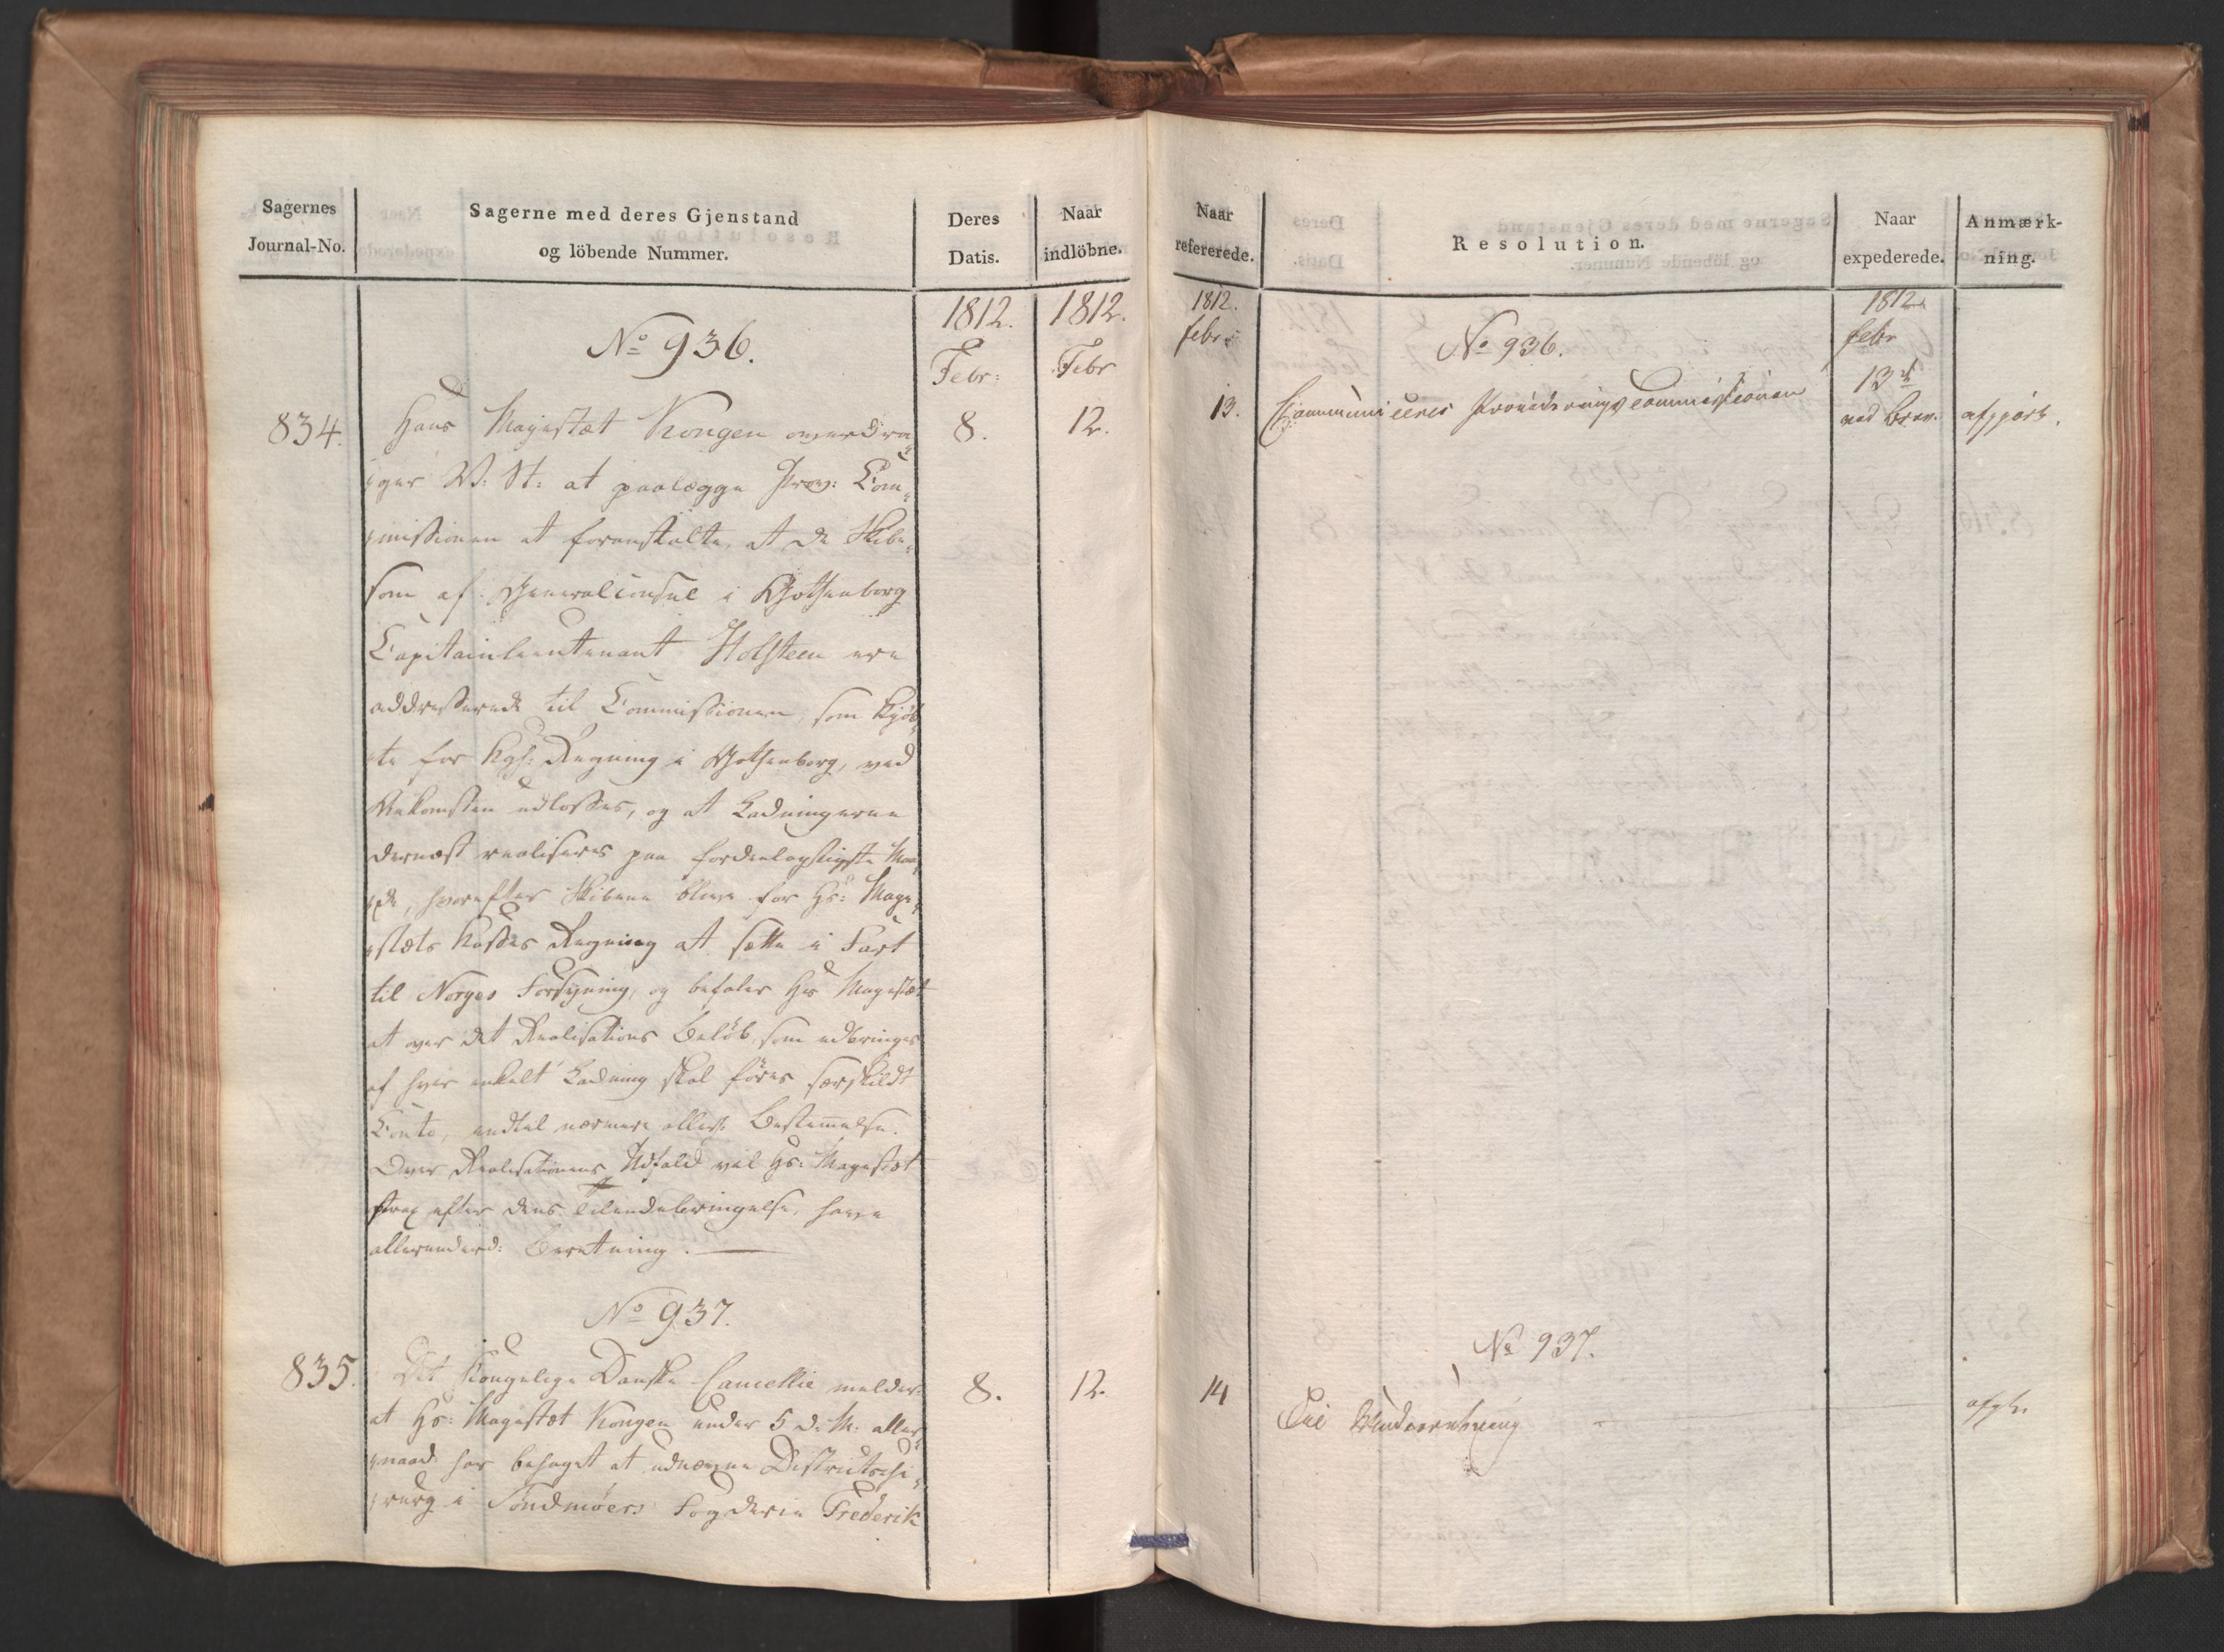 Sagernes
Journal-No.
Sagerne med deres Gjenstand
og löbende Nummer.
Deres
Datis.
Naar
indlöbne.
1812.
Febr:
1812.
Febr
No 936.
834.
Hans Majestæt Kongen overdra-
ger V: St: at paalægge Prov: Com-
missionen at foranstalte, at de Skibe
som af Generalconsul i Gothenborg
Capitainlieutenant Holsteen ere
addresserede til Commissionen, som kjöb-
te for Kgl: Regning i Gothenborg, ved
Ankomsten udlosses, og at Ladningerne
dernæst realiseres paa fordeelagtigste Maa-
de, hvorefter Skibene blive for Hs: Maje-
stæts Kasses Regning at sætte i Fart
til Norges Forsyning, og befaler Hs Majestæt
at over det Realisations Belöb, som udbringes
af hver enkelt Ladning skal föres særskildt
Conto, indtil nærmere allerh: Bestemmelse.
Over Realisationens Udfald vil Hs: Majestæt
strax efter dens Tilendebringelse, have
allerunderd: Beretning.
8.
12.
No 937.
835.
Det Kongelige Danske Cancellie melder
at Hs: Majestæt Kongen under 5 d: M: aller-
naad: har behaget at udnævne Districtschi-
rurg i Söndmöers Fogderie Frederik
8.
12.
Naar
refererede.
Resolution.
Naar
expederede.
Anmærk-
ning.
1812.
febr:
1812.
febr
No 936.
13.
Communiceres Provideringscommissionen
13d
ved Brev.
afgjort.
No 937.
14
Til Underretning
afgt.